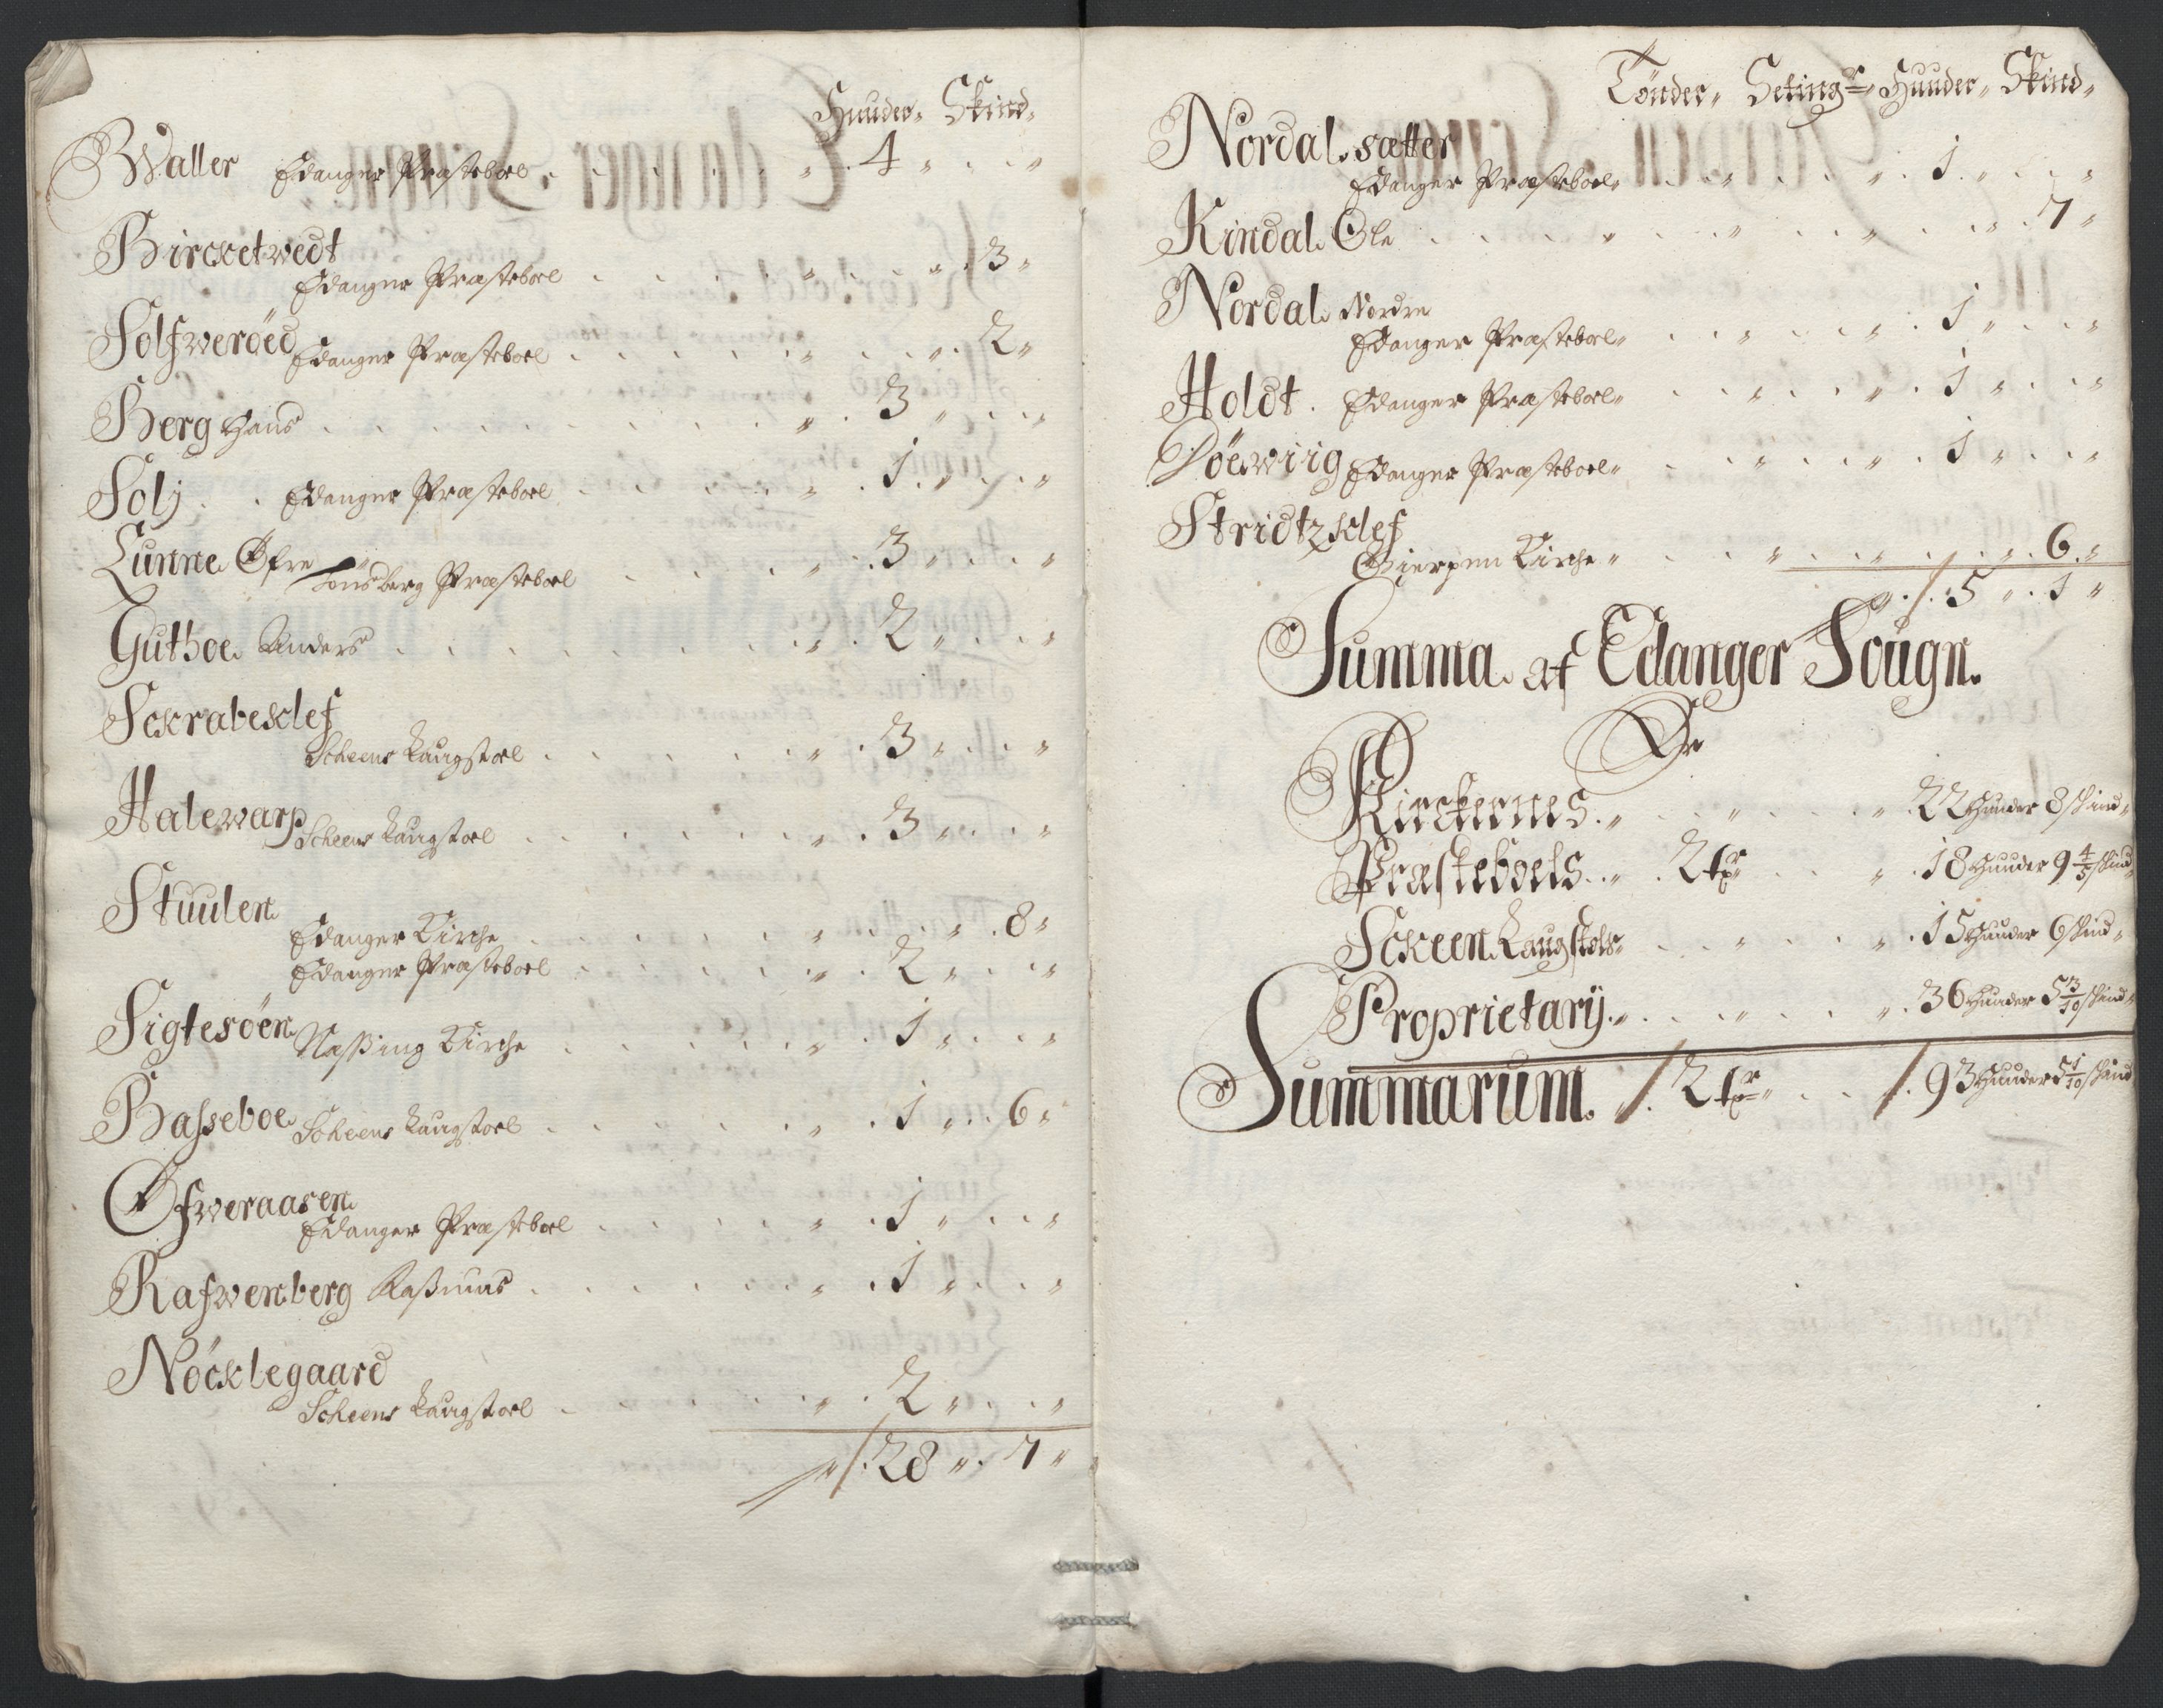 Huuder„ Skind„
Waller Edanger Præsteboel . . . . „ . 4 „ . . „
Bircketwedt
Edanger Præsteboel . . . . „ . . „ . 3 „
Solfweröed Edanger Præsteboel . . . . „ . . „ . 2 „
Berg Hans . . . . . . „ . 3 „ . . „
Solj . . Edanger Præsteboel . . . . „ . 1 „ . . „
Lunne Øfre Tönsberg Præsteboel . . . „ . 3 „ . . „
Guthoe Anders . . . . . . „ . 2 „ . . „
Sckrabesklef
Scheens Laugstoel . . . . . „ . 3 „ . . „
Halewarp Scheens Laugstoel . . . . . „ . 3 „ . . „
Stuulen
Edanger Kirche . . . . . „ . . „ . 8 „
Edanger Præsteboel . . . . „ . 2 „ . . „
Sigtesöen Nassing Kirche . . . . „ . 1 „ . . „
Basseboe Scheens Laugstoel . . . . . „ . 1 „ . . 6 „
Øfweraasen
Edanger Præsteboel . . . . „ . 1 „ . . „
Rafwenberg Rasmus . . . . . „ . 1 „ . . „
Nöcklegaard
Scheens Laugstoel . . . . . „ . 2 „ . . „
„ /. 28 „ . 7 „
Tönder„ Seting„ Huuder„ Skind„
Nordal sætter
Edanger Præsteboel„ . . „ . . „ . 1 „ . . „
Kindal Ole . . . . „ . . „ . . „ . . „ . 7 „
Nordal Nordre
Edanger Præsteboel„ . . „ . . „ . 1 „ . . „
Holdt . Edanger Præsteboel„ . . „ . . „ . 1 „ . . „
Döewiig Edanger Præsteboel„ . . „ . . „ . 1 „ . . „
Stridtzklef
Gierpen Kirche „ . . . „ . . „ . . „ . 6 „
„ /. 5 „ . 1 „
Summa af Edanger Sougn.
De
Kirckernes . „ . . „ . . „ . 22 Huuder 8 Skind„
Præsteboels . . „ . 2 tr „ . . „ . 18 Huuder 9 4/5 Skind
Sckeen Laugstols „ . . „ . . „ . 15 Huuder 6 Skind „
Proprietarij . „ . . „ . . „ . 36 Huuder 5 3/10 Skind „
Summarum. /. 2 tr „ . . /. 93 Huuder 5 1/10 Skind